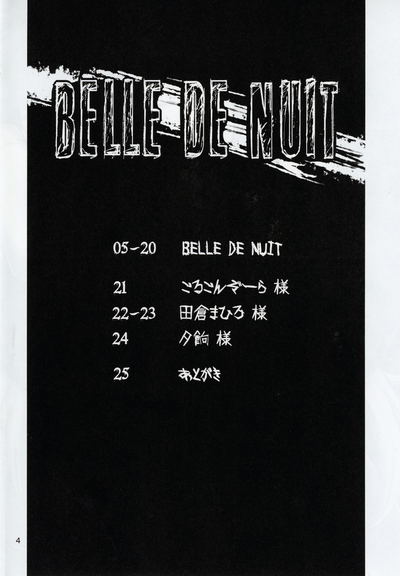 BELLE DE NUIT
05-20 BELLE DE NUIT
21 ごろごんぞーら 様
22-23 田倉まひろ 様
24 夕餉 様
25 あとがき
4